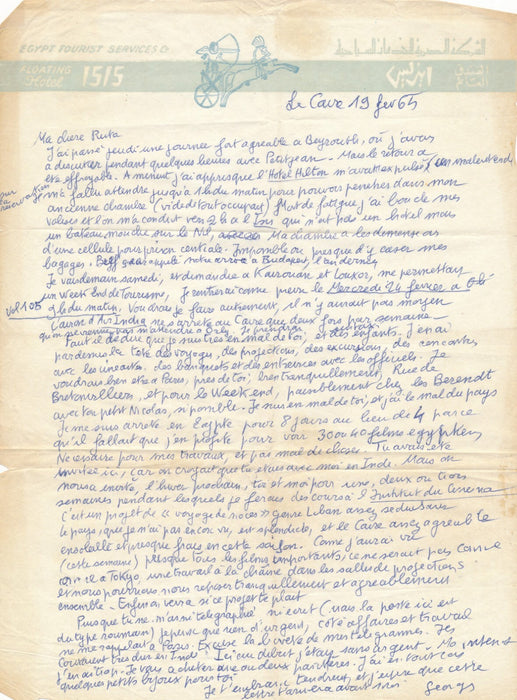 EGYPT TOURIST SERVICES Co
FLOATING Hotel ISIS
الشركة المصرية للخدمات السياحية
الفندق العائم ايزيس
Le Caire 19 fev 65
Ma chere Ruta
J'ai passé jeudi une journée fort agreable a Beyrouth, où j'avais
a discuter pendant quelques heures avec Petitjean. Mais le retour a
été effroyable. A minuit j'ai appris que l'Hotel Hilton m'avait expulsé (un malentendu
sur la reservation)
m'a fallu attendre jusqu'a du matin pour pouvoir dans mon
ancienne chambre (vide et tout occupait). Mort de fatigue j'ai boucle mes
valises et l'on m'a conduit vers 2 h a l'Isis qui n'est pas un hotel mais
un bateau mouche sur le Nil, Ma chambre a les dimensions
d'une cellule pour prison centrale. Impossible ou presque d'y caser mes
bagages. Bref notre arrivée a Budapest, l'an dernier
Je vais demain samedi, et dimanche a Kairouan et Louxor, me permettant
un Week End de Tourisme. Je rentrerai comme prevu le Mercredi 24 fevrier a Orly
Vol 105
du matin, Voudrais je faire autrement, il n'y aurait pas moyen
L'avion d'Air India ne s'arrete au Caire que deux fois par semaine
Faut il te dire que je suis tres en mal de toi, et des enfants. J'en ai
par dessus la tete des voyages, des projections, des excursions, des rencontres
avec les cineastes, des banquets et des entrevues avec les officiels. Je
voudrais bien etre a Paris, pres de toi, bien tranquillement, Rue de
Bretonvilliers, et pour le Week end, paisiblement chez les Berendt
avec ton petit Nicolas, si possible. Je suis en mal de toi, et j'ai le mal du pays
Je me suis arreté en Egypte pour 8 jours au lieu de 4 parce
qu'il fallait que j'en profite pour voir 30 ou 40 films egyptiens
Necessaire pour mes travaux, et pas mal de choses. Tu avais été
invitée ici, car on croyait que tu etais avec moi en Inde. Mais on
nous a invité, l'hiver prochain, toi et moi pour une, deux ou trois
semaines pendant lesquels je ferais des cours a l'Institut du Cinema
C'est un projet de "voyage de noces" genre Liban assez seduisant
le pays, que je n'ai pas encore vu, est splendide, et le Caire assez agreable
ensoleillé et presque frais en cette saison. Comme j'aurai vu
(cette semaine) presque tous les films importants, ce ne serait pas comme
a Tokyo, une travail a la chaine dans les salles de projections
et nous pourrions nous reposer tranquillement et agreablement
ensemble. Enfin on verra si ce projet te plait
Puisque tu ne m'as ni telegraphié ni ecrit (mais la poste ici est
du type roumain) je pense que rien d'urgent, coté affaires et travail
ne me rappelait a Paris. Excuse la breveté de mes telegrammes. Ils
coutaient tres cher en Inde. Ici au debut j'etais sans argent. Maintenant
j'en ai trop. Je vais acheter une ou deux
quelques petits bijoux pour toi
Je t'embrasse tendrement, et j'espere que cette
lettre t'arrivera avant moi. Georges